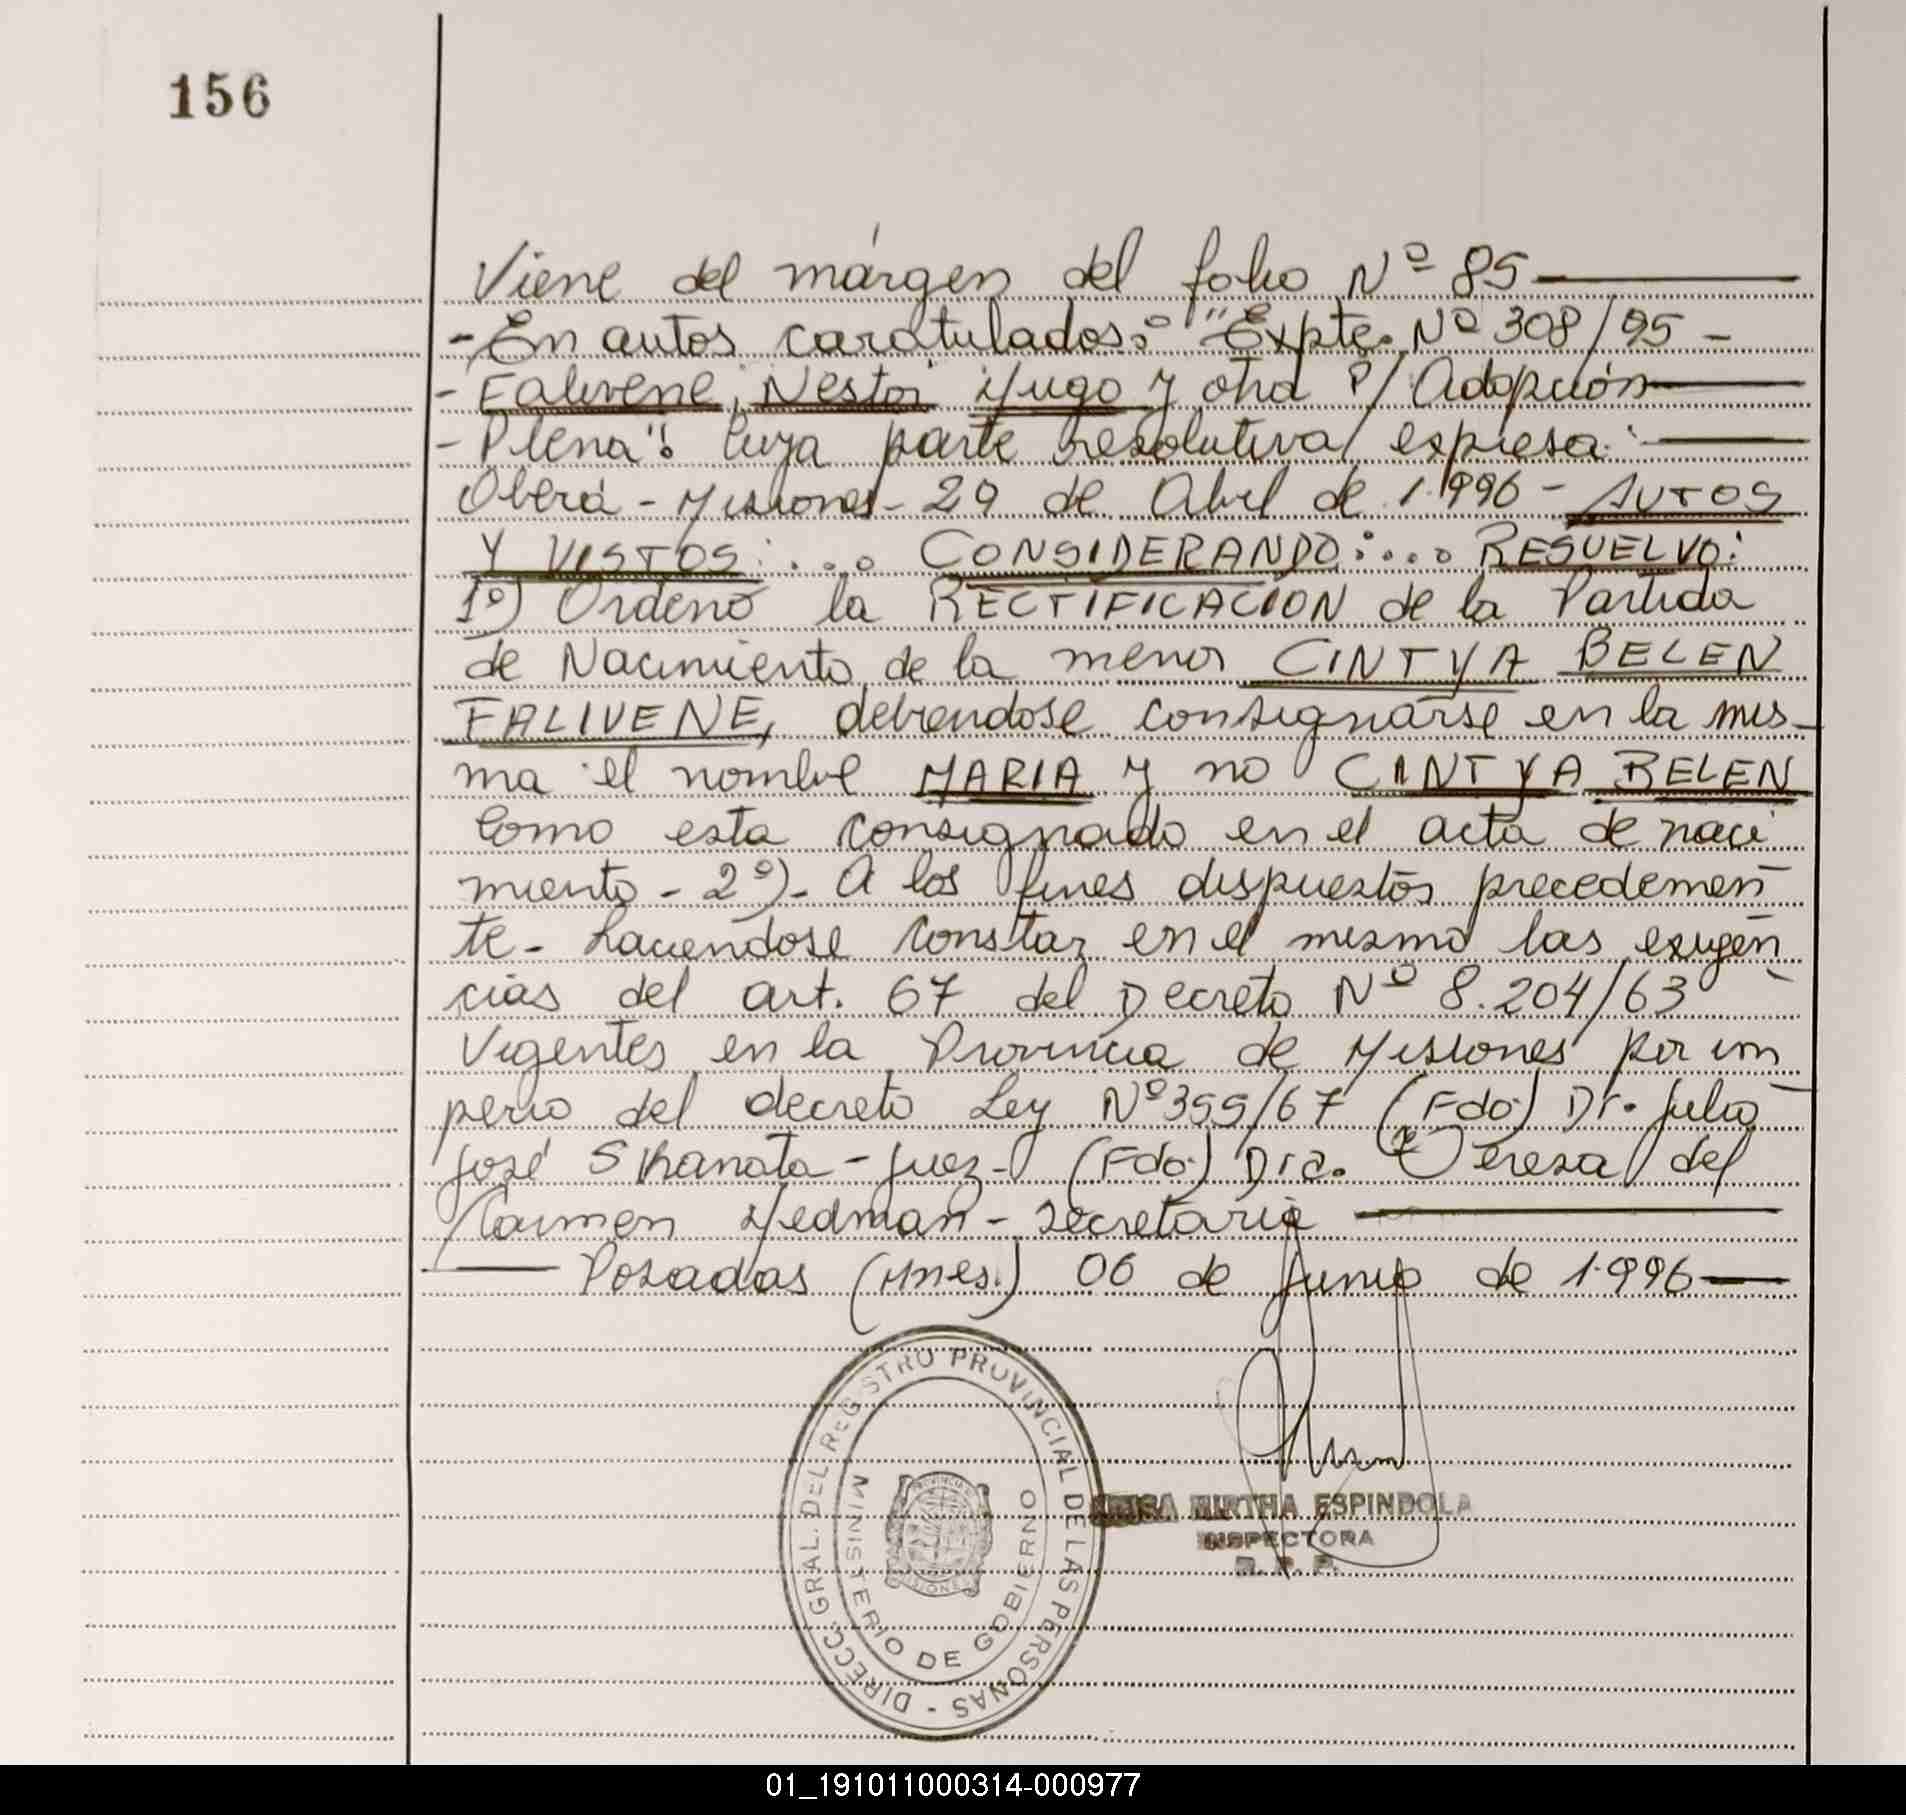 156
Viene del márgen del folio Nº 85
- En autos caratulados: "Expte. Nº 308/95 -
- Falivene, Nestor Hugo y otra P/ Adopción
- Plena". Cuya parte resolutiva expresa:
Oberá - Misiones - 29 de Abril de 1.996 - AUTOS
Y VISTOS: ... CONSIDERANDO: ... RESUELVO:
1º) Ordeno la RECTIFICACION de la Partida
de Nacimiento de la menor CINTYA BELEN
FALIVENE, debiendose consignarse en la mis-
ma el nombre MARIA y no CINTYA BELEN
Como esta consignado en el acta de naci
miento - 2º)- A los fines dispuestos precedemen
te - haciendose constar en el mismo las exigen
cias del art. 67 del Decreto Nº 8.204/63
Vigentes en la Provincia de Misiones por im
perio del decreto Ley Nº 355/67 (Fdo.) Dr. Julio
José Skanata - Juez - (Fdo.) Dra. Teresa del
Carmen Hedman - Secretaria
Posadas (Mnes.) 06 de Junio de 1.996
DIRECC. GRAL. DEL REGISTRO PROVINCIAL DE LAS PERSONAS -
MINISTERIO DE GOBIERNO
PROVINCIA
MISIONES
MIRTHA ESPINDOLA
INSPECTORA
R. P. P.
01_191011000314-000977